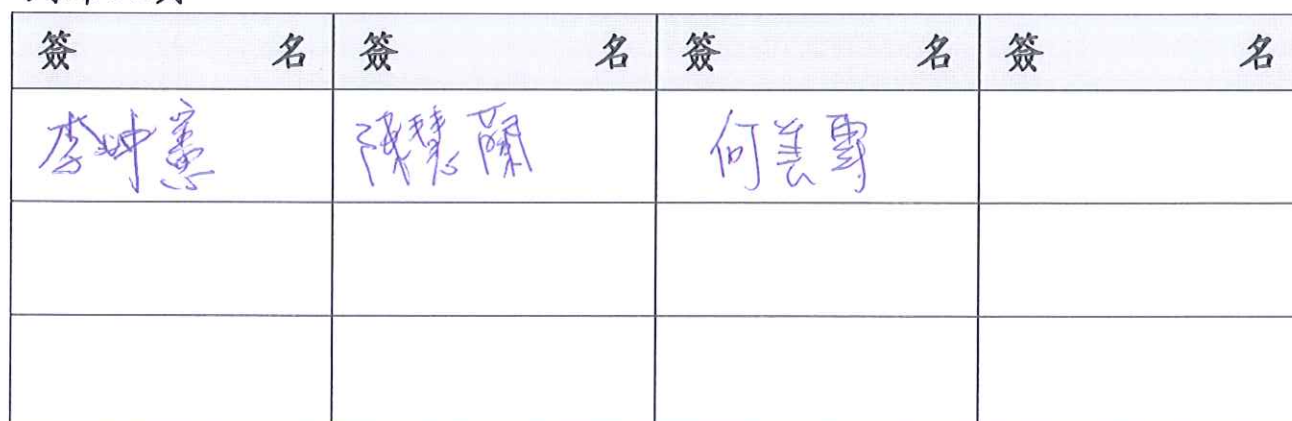 簽名 簽名 簽名 簽名
李坤憲 陳慧蘭 何美